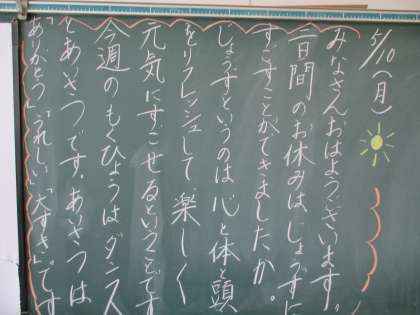 5/10(月)
みなさんおはようございます。
三日間のお休みはじょうずに
すごすことができましたか。
じょうずというのは心と体と頭
をリフレッシュして楽しく
元気にすごせるということです
今週のもくひょうはダンス
とあいさつです。あいさつは
「ありがとう」「うれしい」「大すき」です